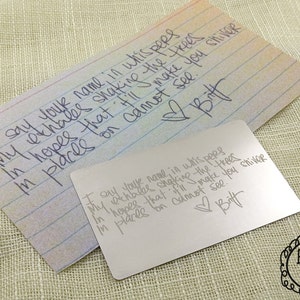 I say your name in whispers
my exhales shaking the trees
in hopes that it'll make you shiver
in places on cannot see
♡ Britt
I say your name in whispers
my exhales shaking the trees
in hopes that it'll make you shiver
in places on cannot see
♡ Britt